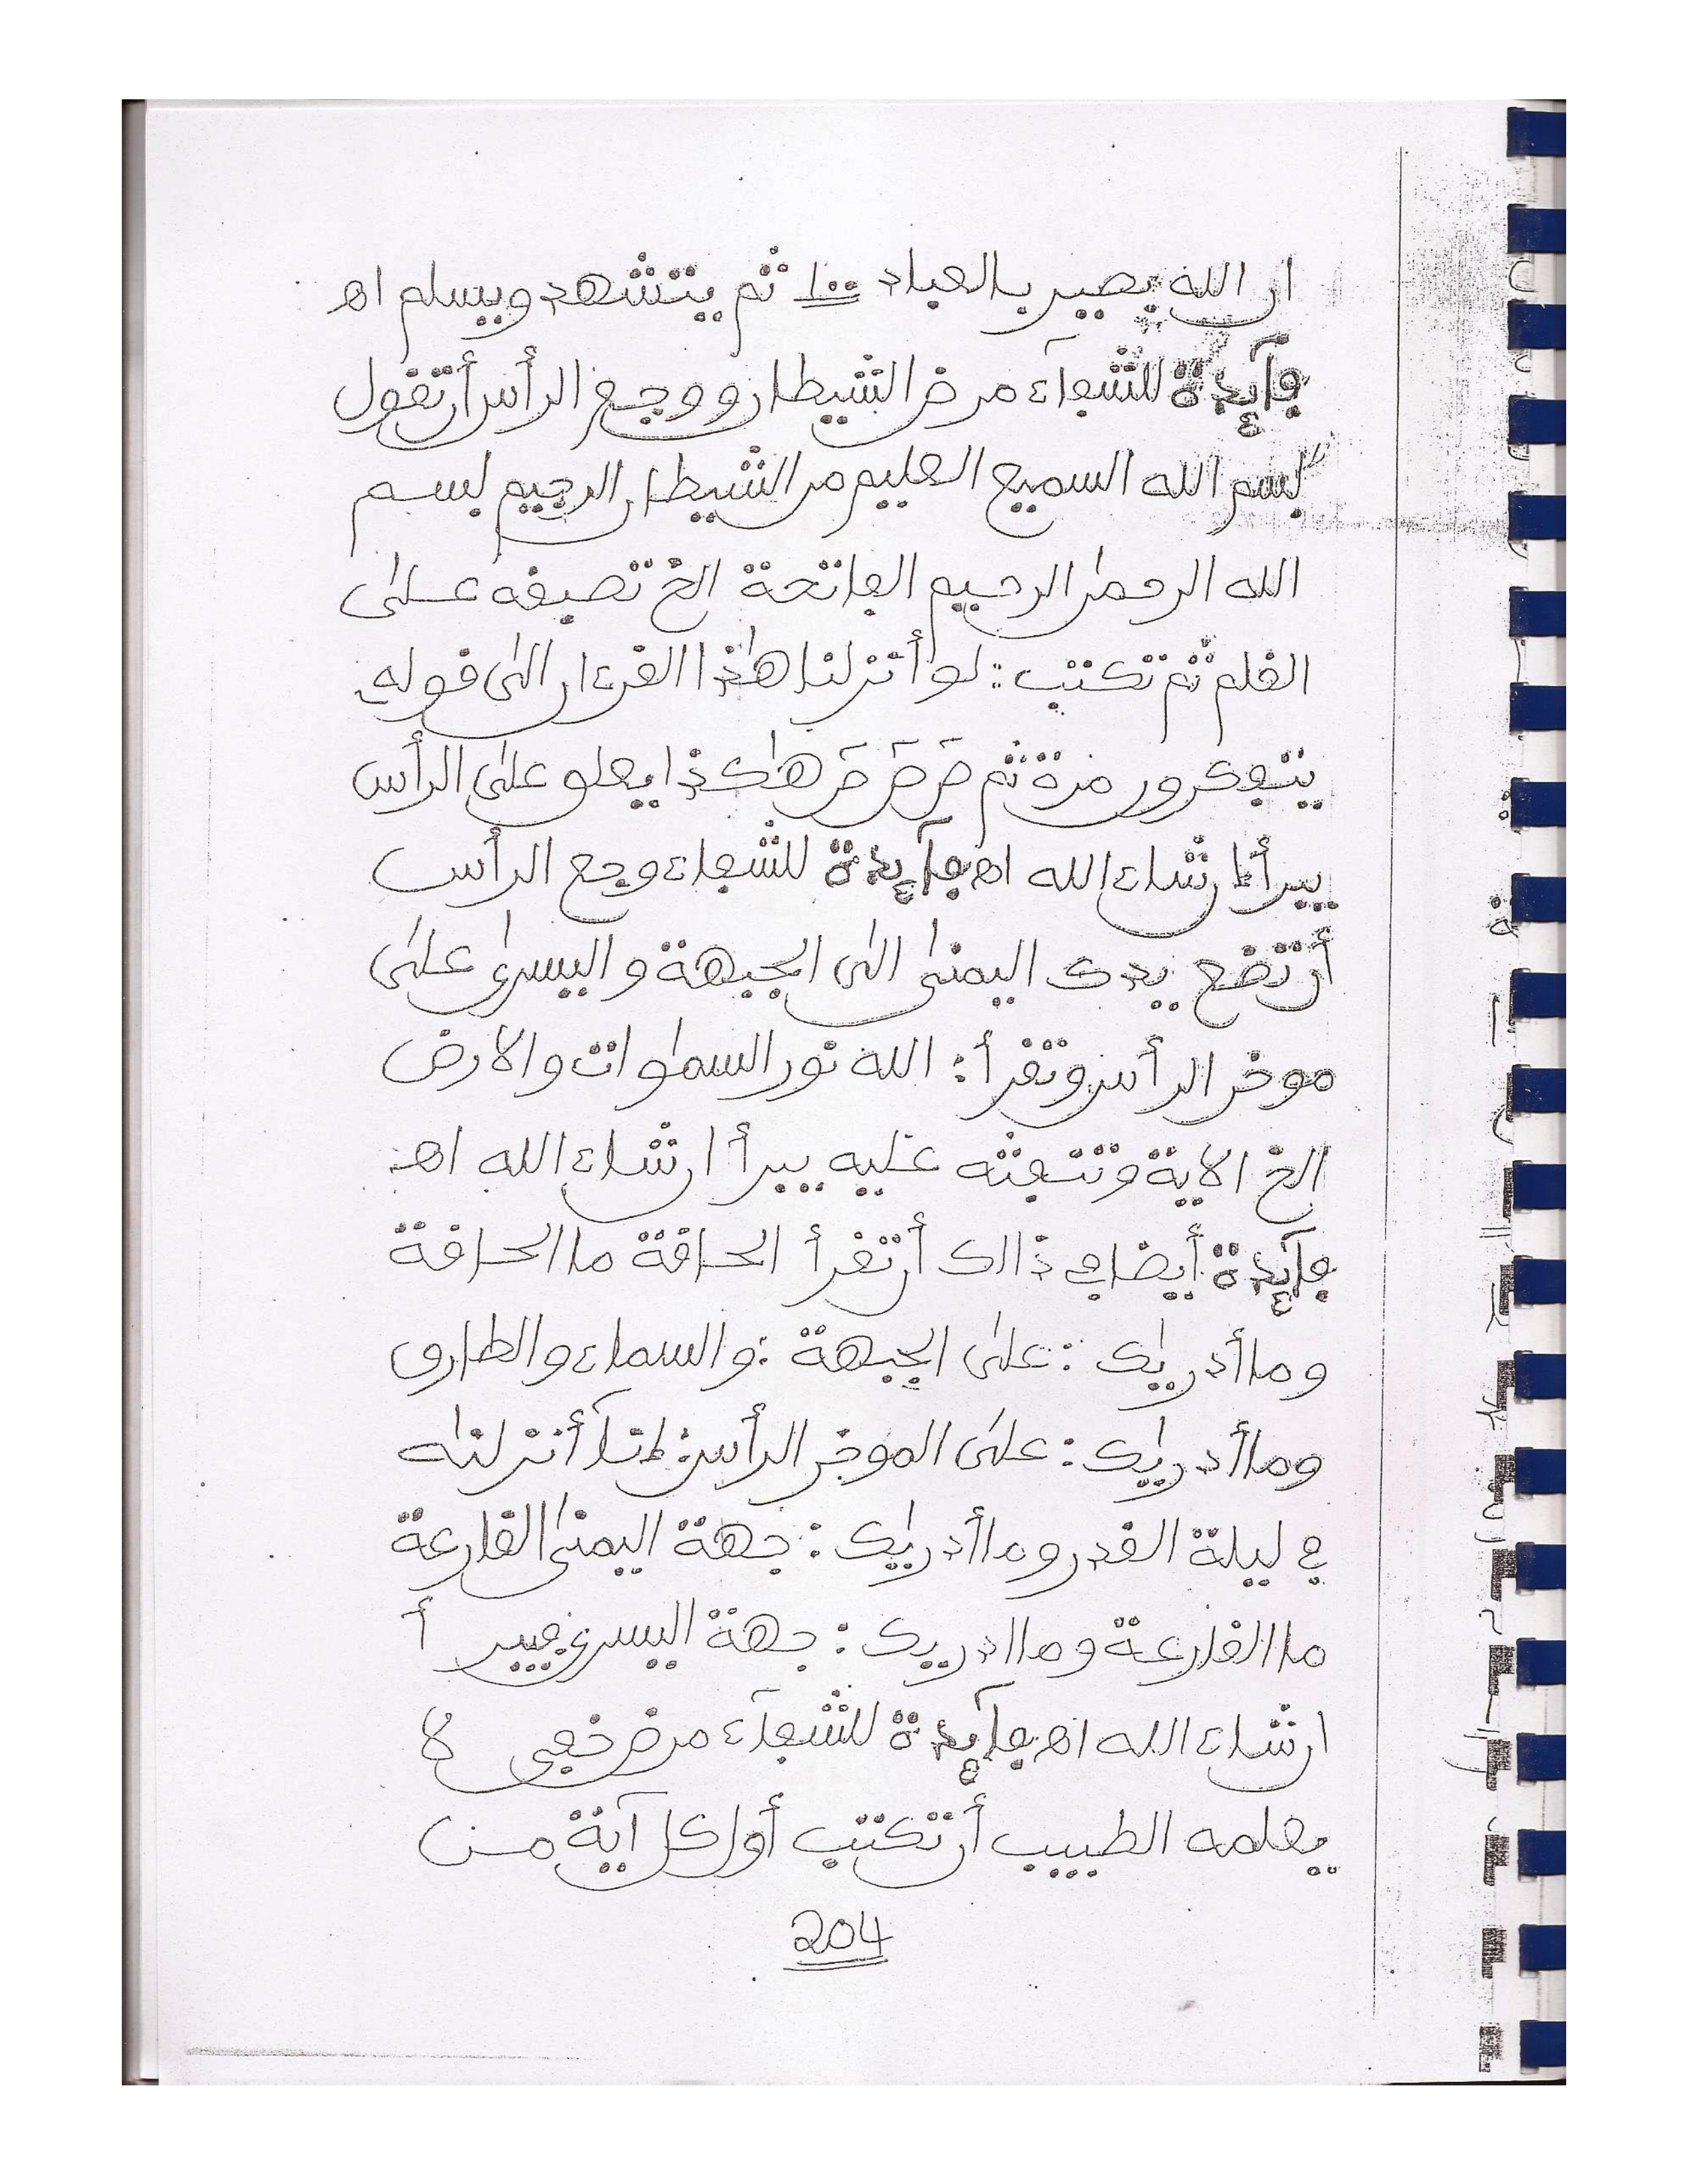 ان الله بصير بالعباد ١٠٠ ثم يتشهد ويسلم اه
فآئدة للشفآء مرض الشيطان ووجع الرأس أن تقول
بسم الله السميع العليم من الشيطان الرجيم بسم
الله الرحمٰن الرحيم الفاتحة الخ تصيفه على
القلم ثم تكتب: لو أنزلنا هٰذا القرءان الى قوله
يتفكرون مرة ثم هٰكذا يعلو على الرأس
يبرأ ان شاء الله اه فآئدة للشفاء وجع الرأس
أن تضع يدك اليمنىٰ الى الجبهة واليسرىٰ علىٰ
موخر الرأس وتقرأ: الله نور السمٰوات والارض
الخ الاية وتنفثه عليه يبرأ ان شاء الله اه
فآئدة أيضا في ذالك أن تقرأ الحاقة ما الحاقة
وما أدريٰك: علىٰ الجبهة: والسماء والطارق
وما أدريٰك: علىٰ الموخر الرأس: إنآ أنزلنٰه
في ليلة القدر وما أدريٰك: جهة اليمنىٰ القارعة
ما القارعة وما ادريك: جهة اليسرىٰ فيبرأ
ان شاء الله اه فآئدة للشفآء مرض خفي لا
يعلمه الطبيب أن تكتب أول كل آية من
204